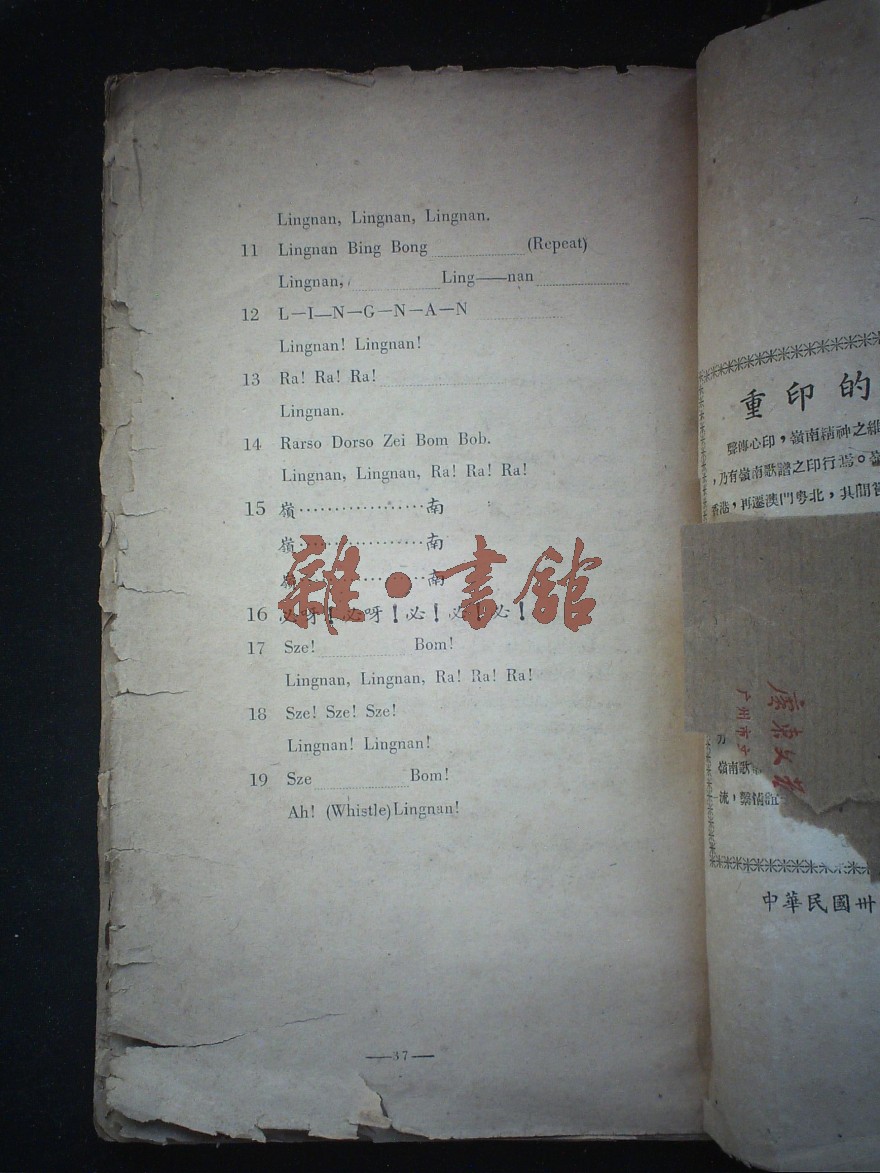 Lingnan, Lingnan, Lingnan.
11 Lingnan Bing Bong (Repeat)
Lingnan, Ling——nan
12 L—I—N—G—N—A—N
Lingnan! Lingnan!
13 Ra! Ra! Ra!
Lingnan.
14 Rarso Dorso Zei Bom Bob.
Lingnan, Lingnan, Ra! Ra! Ra!
15 嶺··················南
嶺··················南
嶺··················南
16 必呀!必呀!必!必!必!
17 Sze! Bom!
Lingnan, Lingnan, Ra! Ra! Ra!
18 Sze! Sze! Sze!
Lingnan! Lingnan!
19 Sze Bom!
Ah! (Whistle) Lingnan!
—37—
雜·書館
重印的
聲傳心印,嶺南精神之維
,乃有嶺南歌譜之印行焉。
香港,再遷澳門粵北,其間
廣東文
广州市
嶺南歌
流,繫情誼
中華民國卅